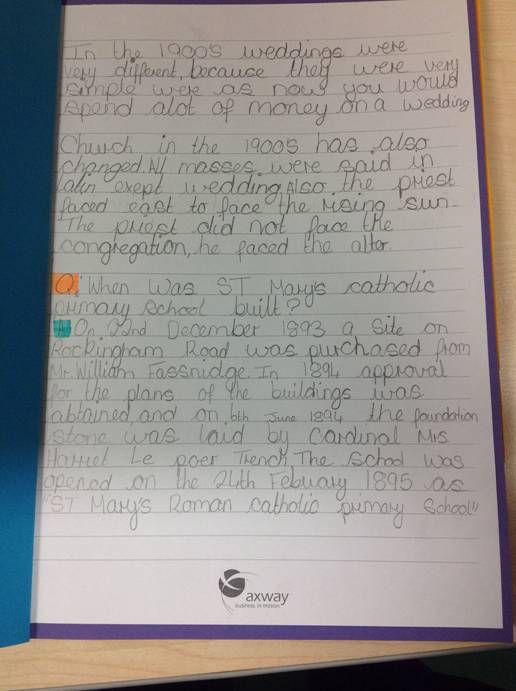 In the 1900's weddings were
very different, because they were very
simple were as now you would
spend alot of money on a wedding
Church in the 1900s has also
changed. All masses were said in
latin exept wedding. Also the priest
faced east to face the rising sun.
The priest did not face the
congregation, he faced the alter.
Q: When was ST Mary's catholic
primary school built?
On 22nd December 1893 a site on
Rockingham Road was purchased from
Mr. William Fassnidge. In 1894 approval
for the plans of the buildings was
abtained, and on 6th June 1894 the foundation
stone was laid by Cardinal Mrs
Harriet Le poer Trench. The school was
opened on the 24th Febuary 1895 as
"ST Mary's Roman catholic primary School"
axway
business in motion